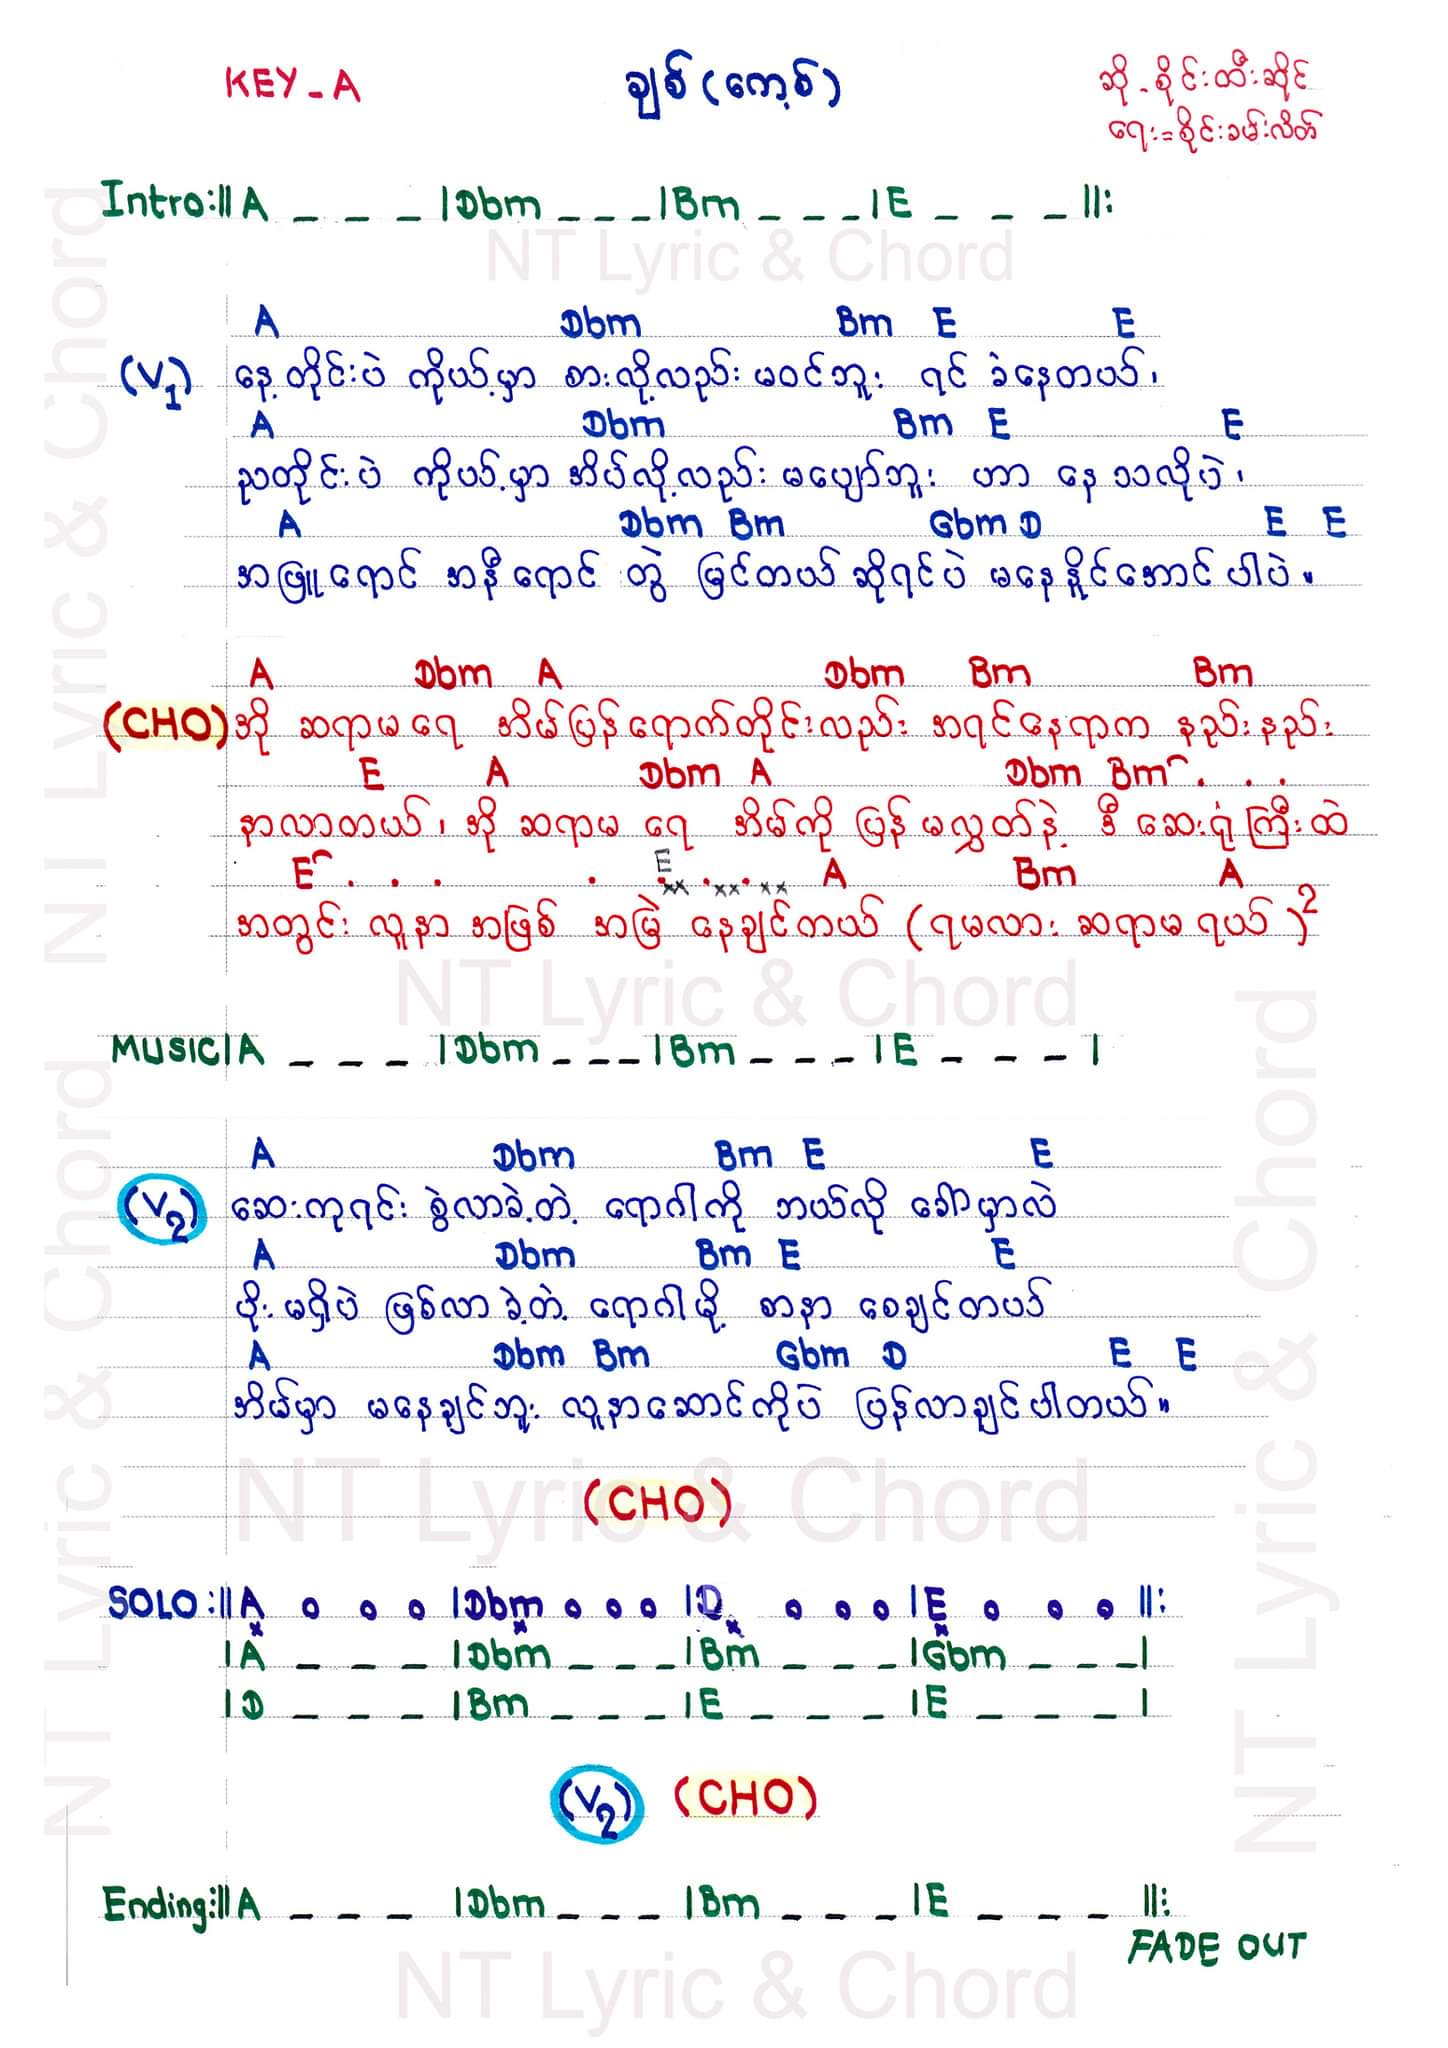 KEY - A
ချစ် (ကေ့စ်)
ဆို - စိုင်းထီးဆိုင်
ရေး = စိုင်းခမ်းလိတ်
Intro :|| A _ _ _ | Dbm _ _ _ | Bm _ _ _ | E _ _ _ ||:
NT Lyric & Chord
A Dbm Bm E E
(V1) နေ့တိုင်းပဲ ကိုယ့်မှာ စားလို့လည်း မဝင်ဘူး ရင် ခဲနေတယ်၊
A Dbm Bm E E
ညတိုင်းပဲ ကိုယ့်မှာ အိပ်လို့လည်း မပျော်ဘူး ဟာ နေ သလိုပဲ၊
A Dbm Bm Gbm D E E
အဖြူရောင် အနီရောင် တွဲ မြင်တယ် ဆိုရင်ပဲ မနေနိုင်အောင် ပါပဲ။
A Dbm A Dbm Bm Bm
(CHO) အို ဆရာမရေ အိမ်ပြန်ရောက်တိုင်းလည်း အရင်နေရာက နည်းနည်း
E A Dbm A Dbm Bm . . .
နာလာတယ်၊ အို ဆရာမ ရေ အိမ်ကို ပြန်မလွှတ်နဲ့ ဒီ ဆေးရုံကြီးထဲ
E . . . . E . . . xx xx xx A Bm A
အတွင်း လူနာ အဖြစ် အမြဲ နေချင်တယ် (ရမလား ဆရာမရယ်)2
NT Lyric & Chord
MUSIC | A _ _ _ | Dbm _ _ _ | Bm _ _ _ | E _ _ _ |
A Dbm Bm E E
(V2) ဆေးကုရင်း စွဲလာခဲ့တဲ့ ရောဂါကို ဘယ်လို ခေါ်မှာလဲ
A Dbm Bm E E
ပိုးမရှိပဲ ဖြစ်လာခဲ့တဲ့ ရောဂါမို့ စာနာ စေချင်တယ်
A Dbm Bm Gbm D E E
အိမ်မှာ မနေချင်ဘူး လူနာဆောင်ကိုပဲ ပြန်လာချင်ပါတယ်။
NT Lyric & Chord
(CHO)
SOLO :|| A o o o | Dbm o o o | D o o o | E o o o ||:
x x x x
| A _ _ _ | Dbm _ _ _ | Bm _ _ _ | Gbm _ _ _ |
| D _ _ _ | Bm _ _ _ | E _ _ _ | E _ _ _ |
(V2) (CHO)
Ending :|| A _ _ _ | Dbm _ _ _ | Bm _ _ _ | E _ _ _ ||:
FADE OUT
NT Lyric & Chord
NT Lyric & Chord
NT Lyric & Chord
NT Lyric & Chord